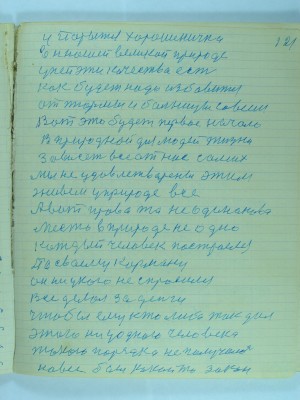 121
и Парвшя хорошиничка
в нашей великой природе
у ней эти качества есть
как будет надо избавится
от тюрьмы и больницы совсем
Вот это будет первое начало
В природной для людей жизни
Зависет все от нас самих
Мы не удовлетварены этим
живем у природе все
А вот права та не одинакова
Место в природе не одно
каждый человек построем
По своему карману
он ни у кого не спросился
Все делал за деньги
чтобы ему кто либо так дал
этого ни у одного человека
такого порядка не получалос
на все был какой то закон